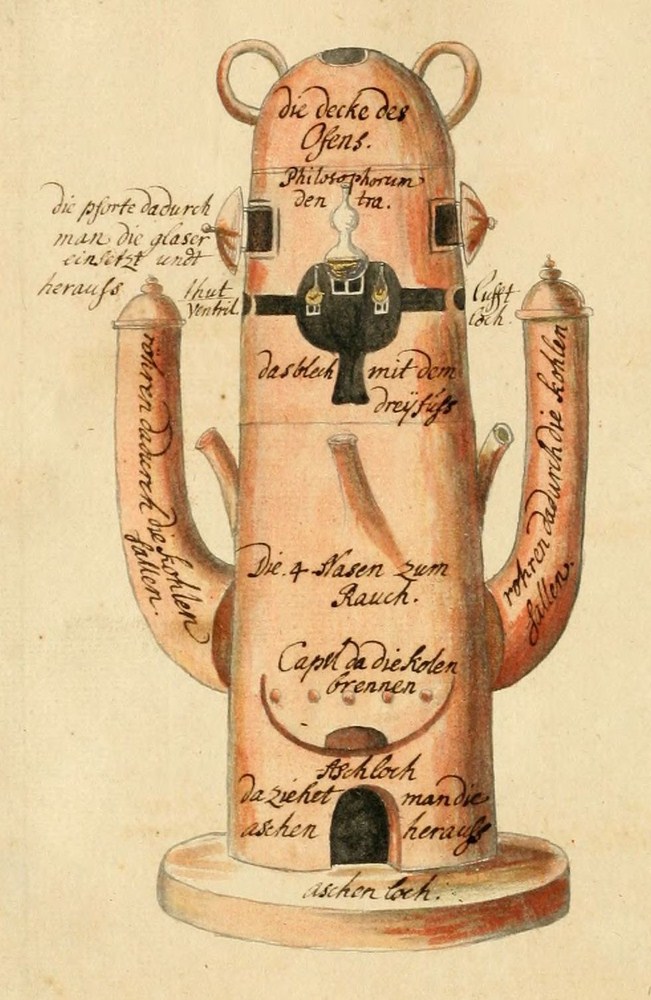 die decke des
Ofens.
Philosophorum
den tra.
die pforte dadurch
man die glaser
einsetzt undt
herauss
thut
Ventril
lufft
loch.
das blech mit dem
dreÿfuss
röhren dadurch die Kohlen
fallen.
röhren dadurch die Kohlen
fallen.
Die 4 Nasen zum
Rauch.
Capel da die Kolen
brennen
Aschloch
da ziehet man die
aschen herauss
aschen loch.